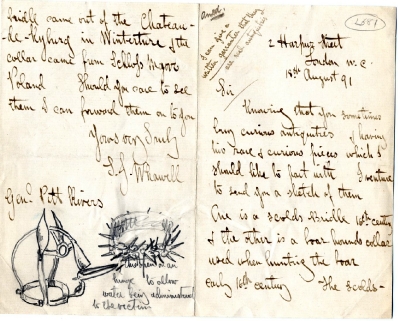 Ansd.
I can give a
written guarantee that they
are both antiquities
2 Harpur Street
London W.C.
18th August 91
Sir
Knowing that you sometimes
buy curious antiquities & having
two rare & curious pieces which I
should like to part with I venture
to send you a sketch of them
One is a scolds Bridle 16th century
& the other is a boar hounds collar
used when hunting the boar
early 16th century The scolds-
Bridle came out of the Chateau-
de-Kyburg in Winterture & the
collar came from Schloss
Poland. Should you care to see
them I can forward them on to you
Yours very truly
S. G. Whawell
Genl. Pitt Rivers
on an
hinge to allow
water being administered
to the victim